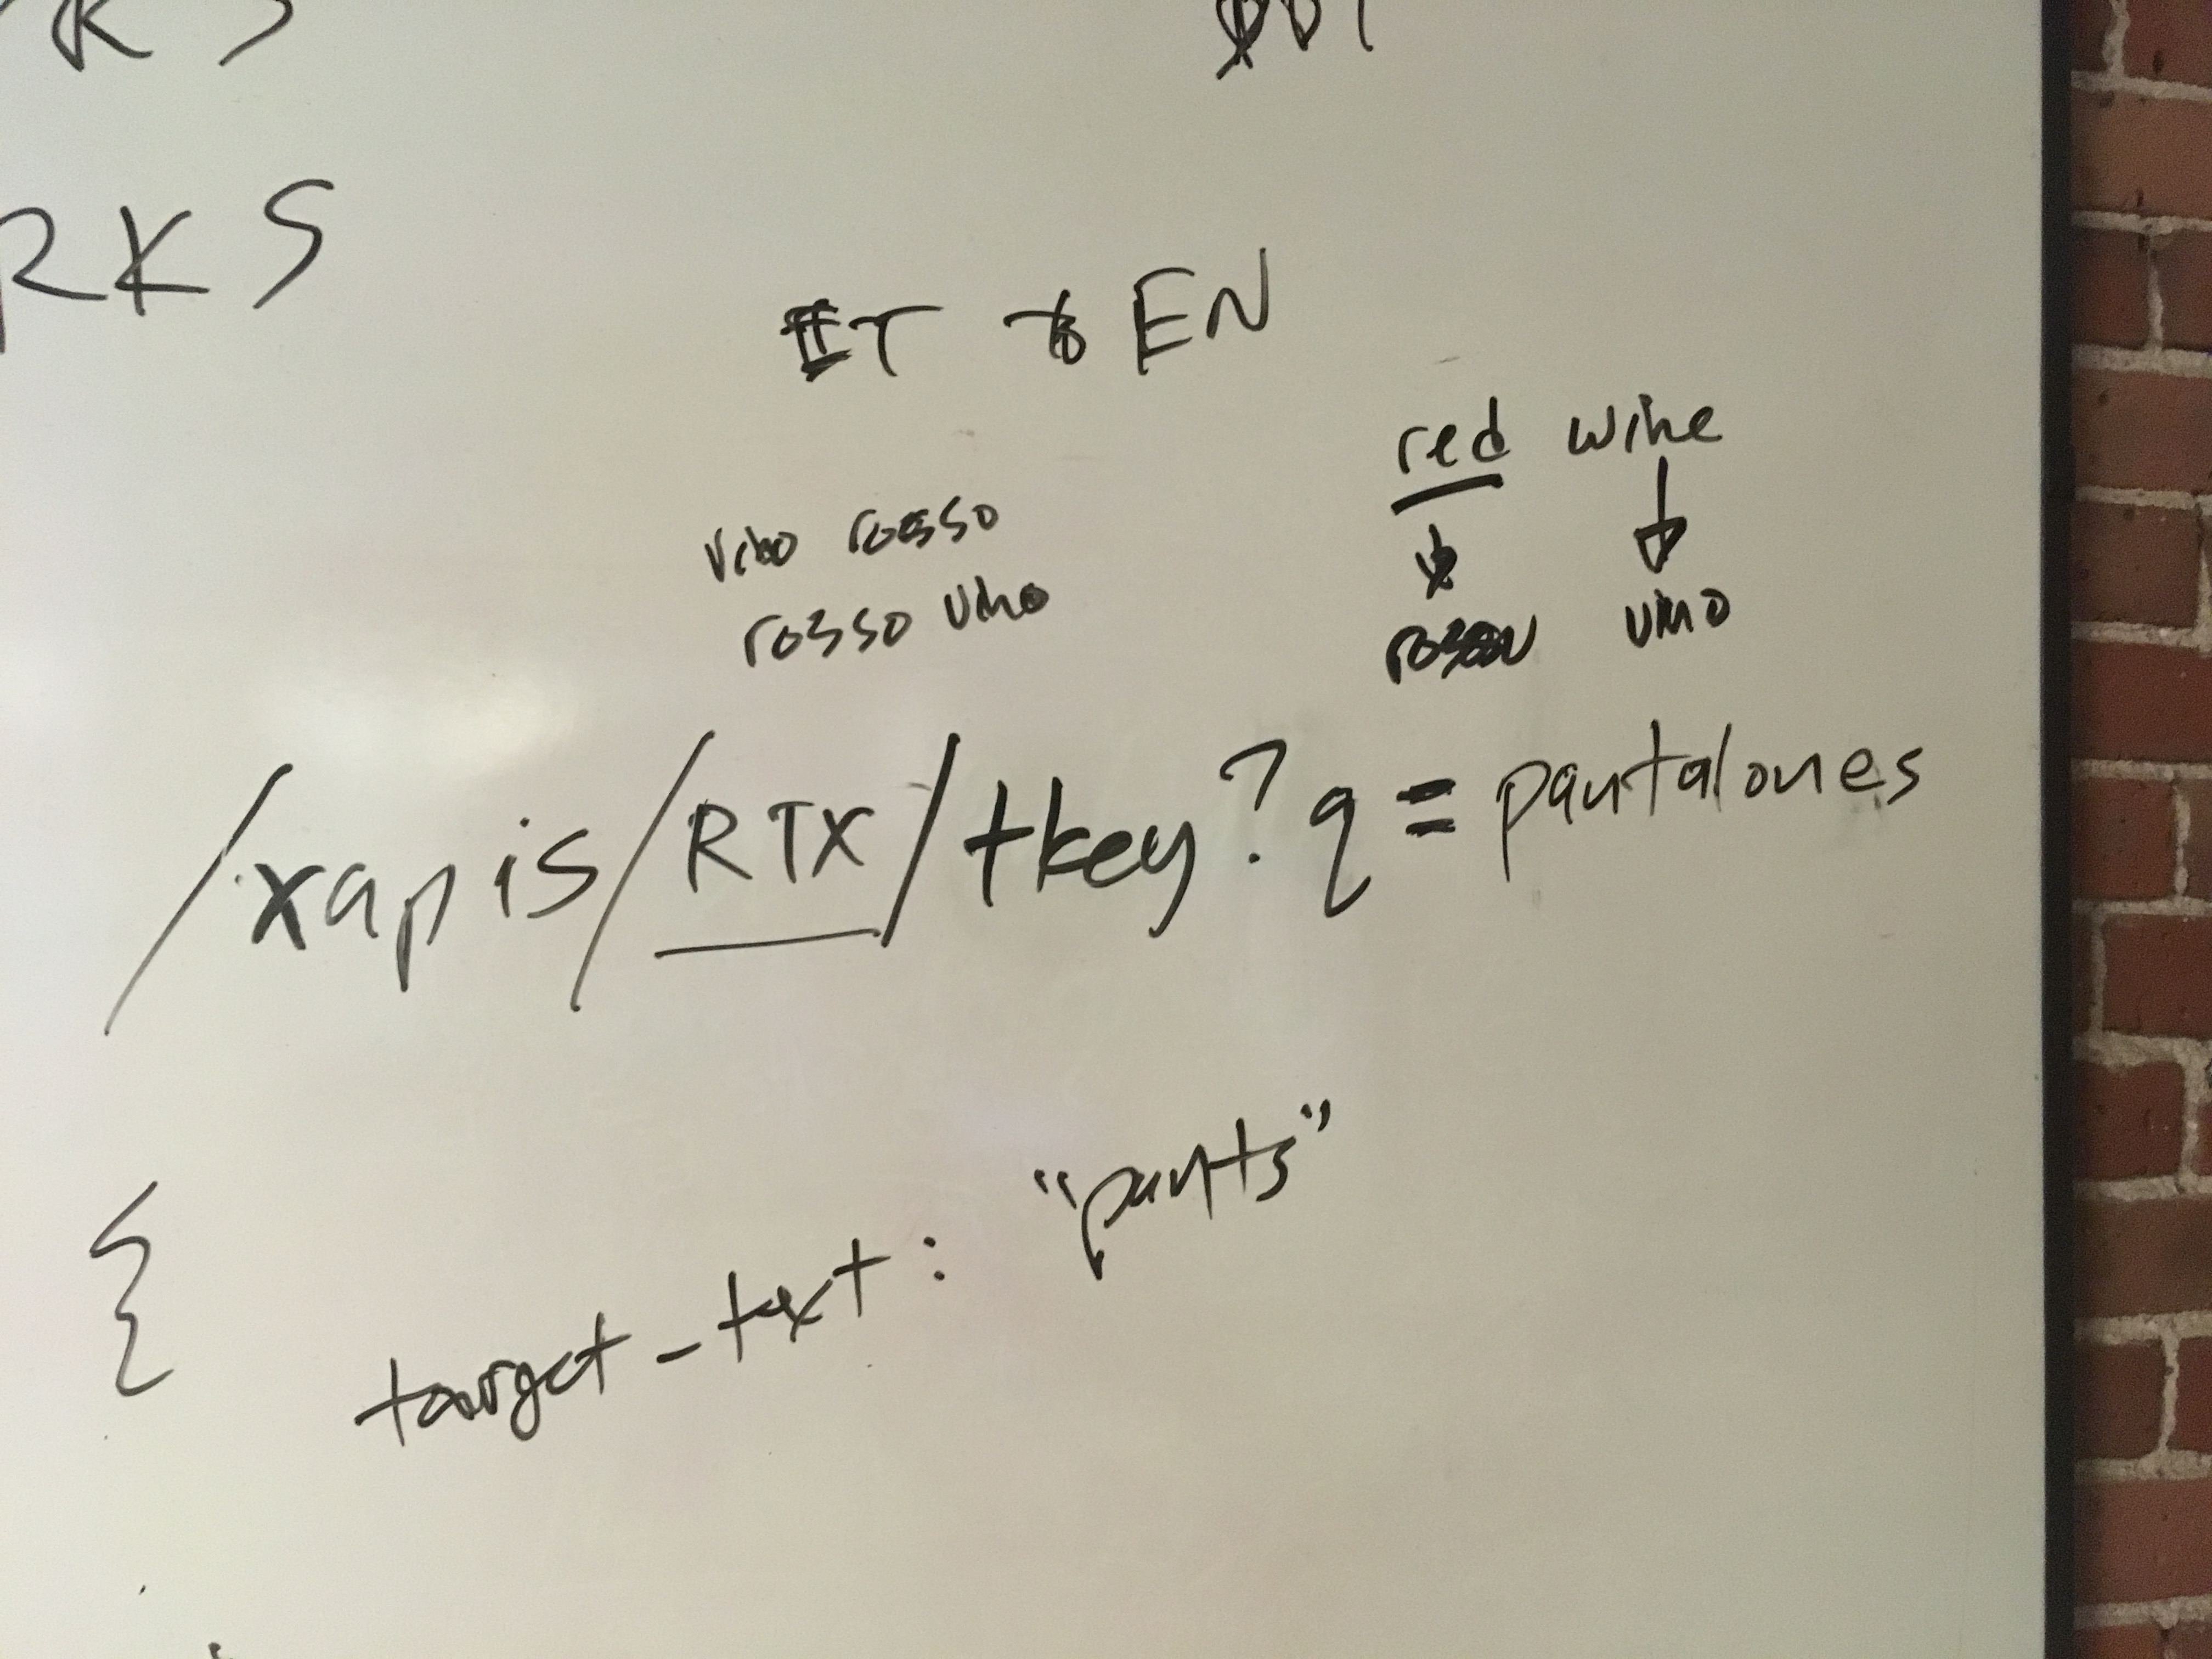 RKS
IT to EN
red wine
vino rosso
rosso vino
vino
/xapis/RTX/tkey?q=pantalones
{
target_text: "pants"